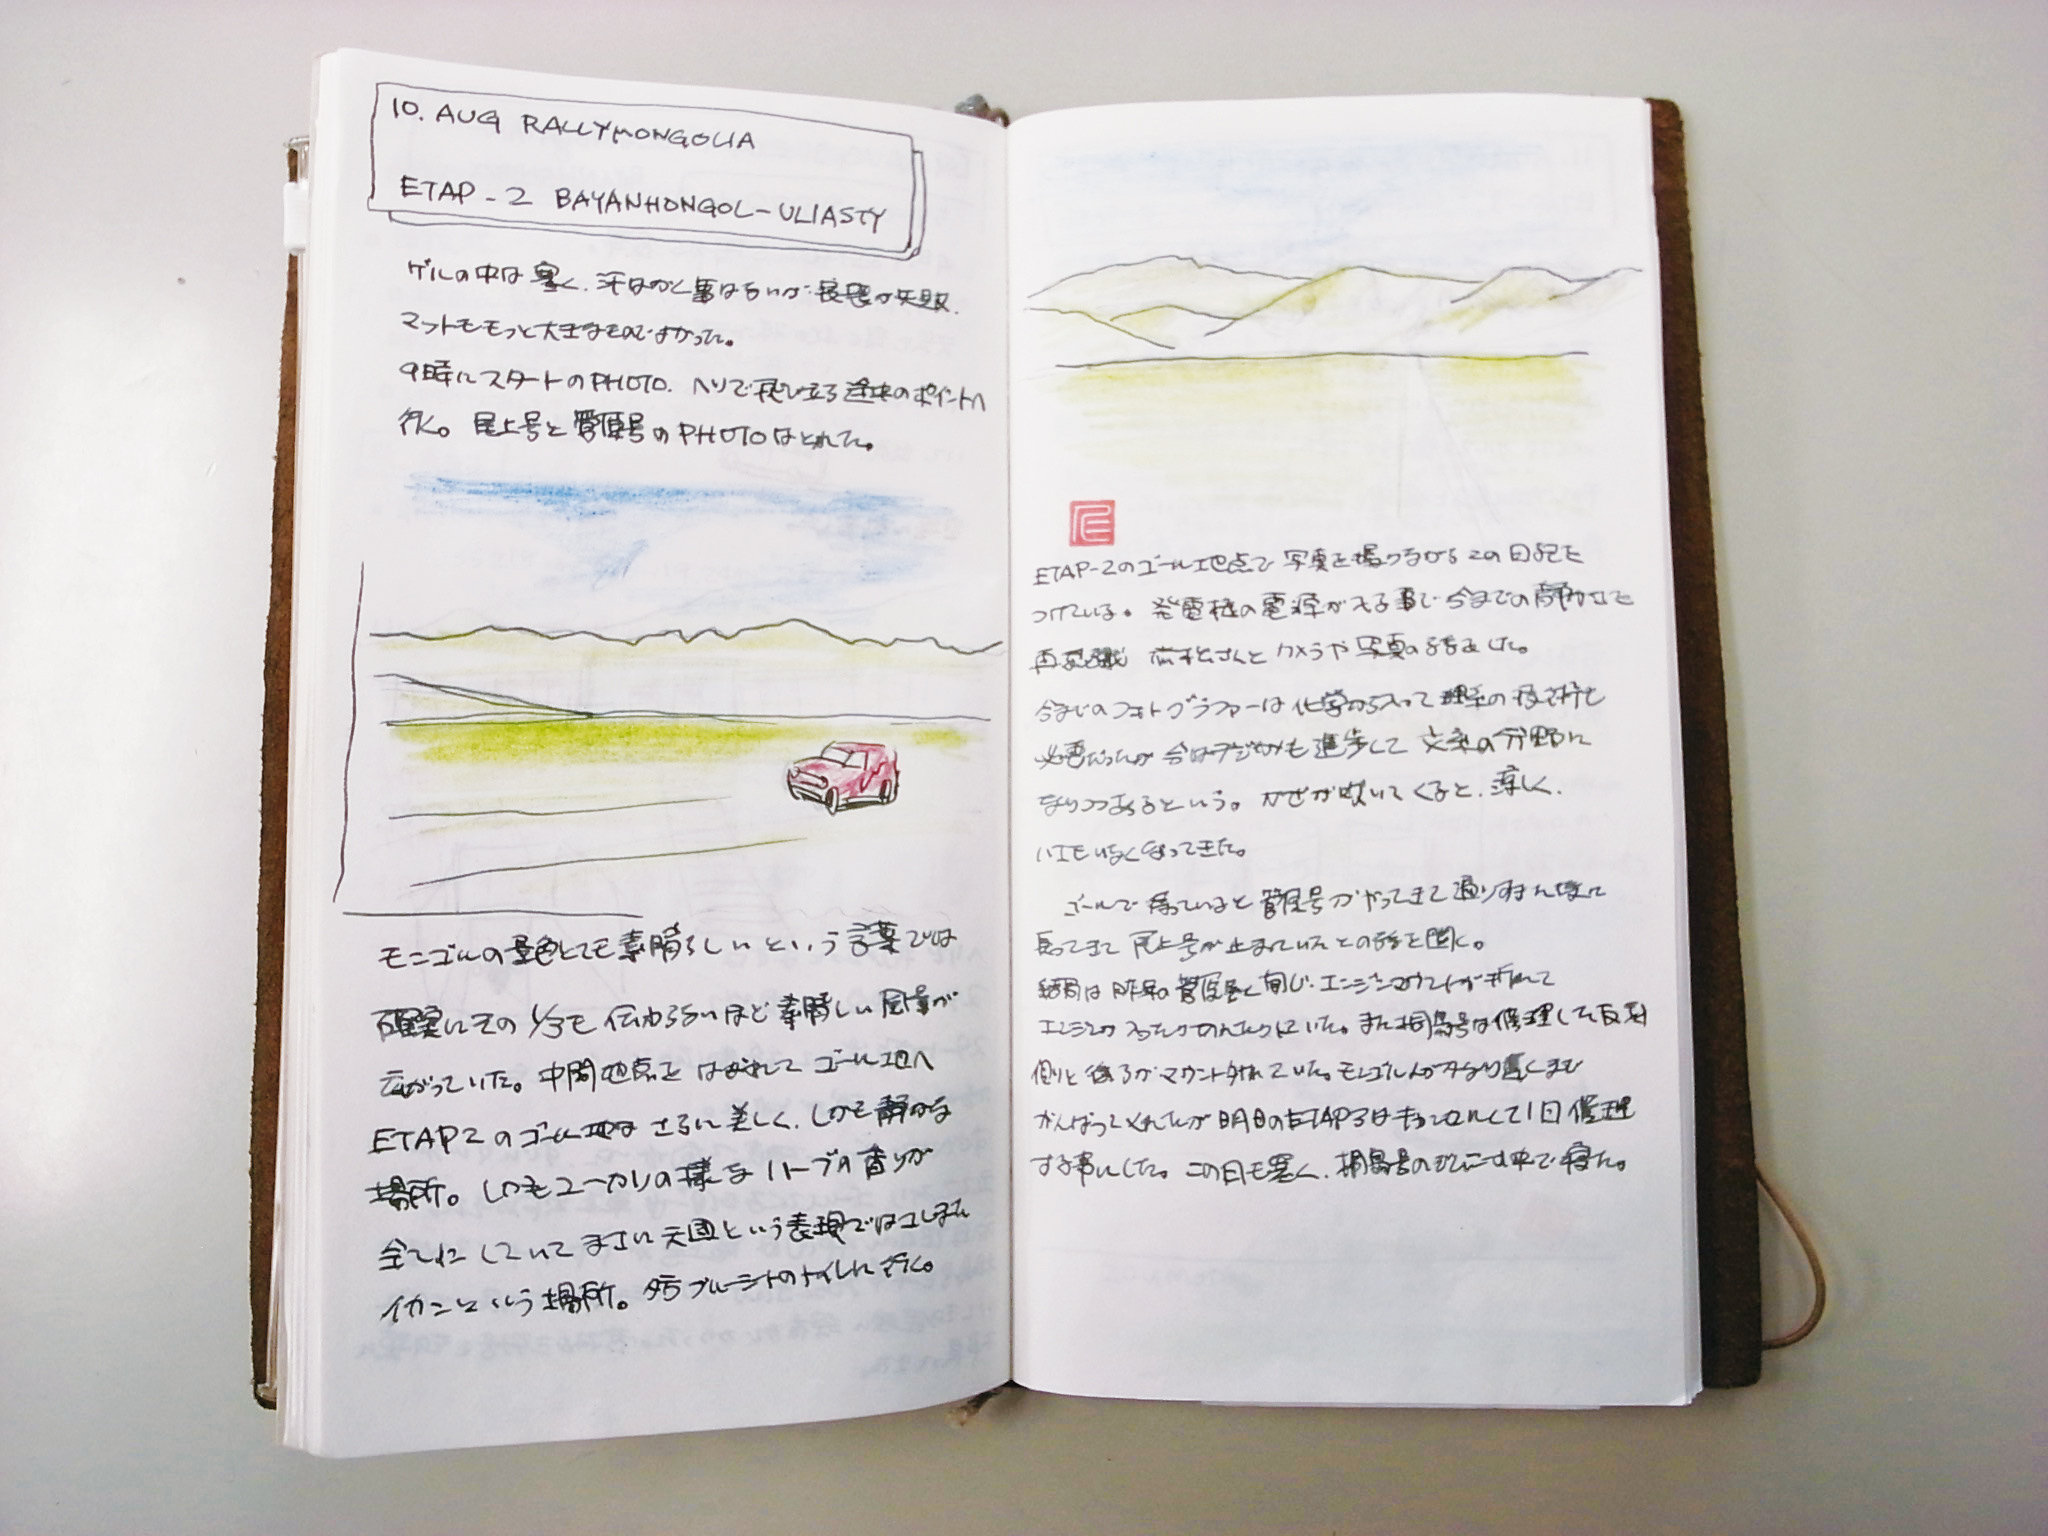 10. AUG RALLYMONGOLIA
ETAP-2 BAYANHONGOL-ULIASTY
ゲルの中は寒く、汗はかく事はないが 寝袋が失敗.
マットももっと大きなものでよかった。
9時にスタートのPHOTO. ヘリで飛び立ち 途中のポイントへ
行く。尾上号と菅原号のPHOTOはとれた。
モンゴルの景色とても素晴らしいという言葉では
確実にその1/3も伝わらないほど素晴しい風景が
広がっていた。中間地点を はなれて ゴール地へ
ETAP2のゴール地は さらに美しく、しかも静かな
場所。しかもユーカリの様な ハーブの香りが
していて まさに天国という表現では
イカンという場所。夕方ブルーシートのトイレに行く。
ETAP-2のゴール地点で 写真を撮りながら この日記を
つけている。発電機の電源が入る事で今までの静かさを
再認識 さんと カメラや写真の話をした。
今までのフォトグラファーは 化学から入って 理系の技術も
必要だったが 今はデジカメも進歩して 文系の分野に
なりつつあるという。かぜが吹いてくると、涼しく、
ハエもいなくなってきた。
ゴールで待っていると 菅原号がやってきて 通りすぎた後に
戻ってきて 尾上号が止まっていたとの話を聞く。
結局は 昨年の菅原号と同じ、エンジンマウントが折れて
エンジンが していた。また桐島号は修理した反対
側と後ろがマウント外れていた。モンゴル人がかなり遅くまで
がんばってくれたが 明日のETAP3はキャンセルして1日修理
する事にした。この日も寒く、桐島号の 中で寝た。